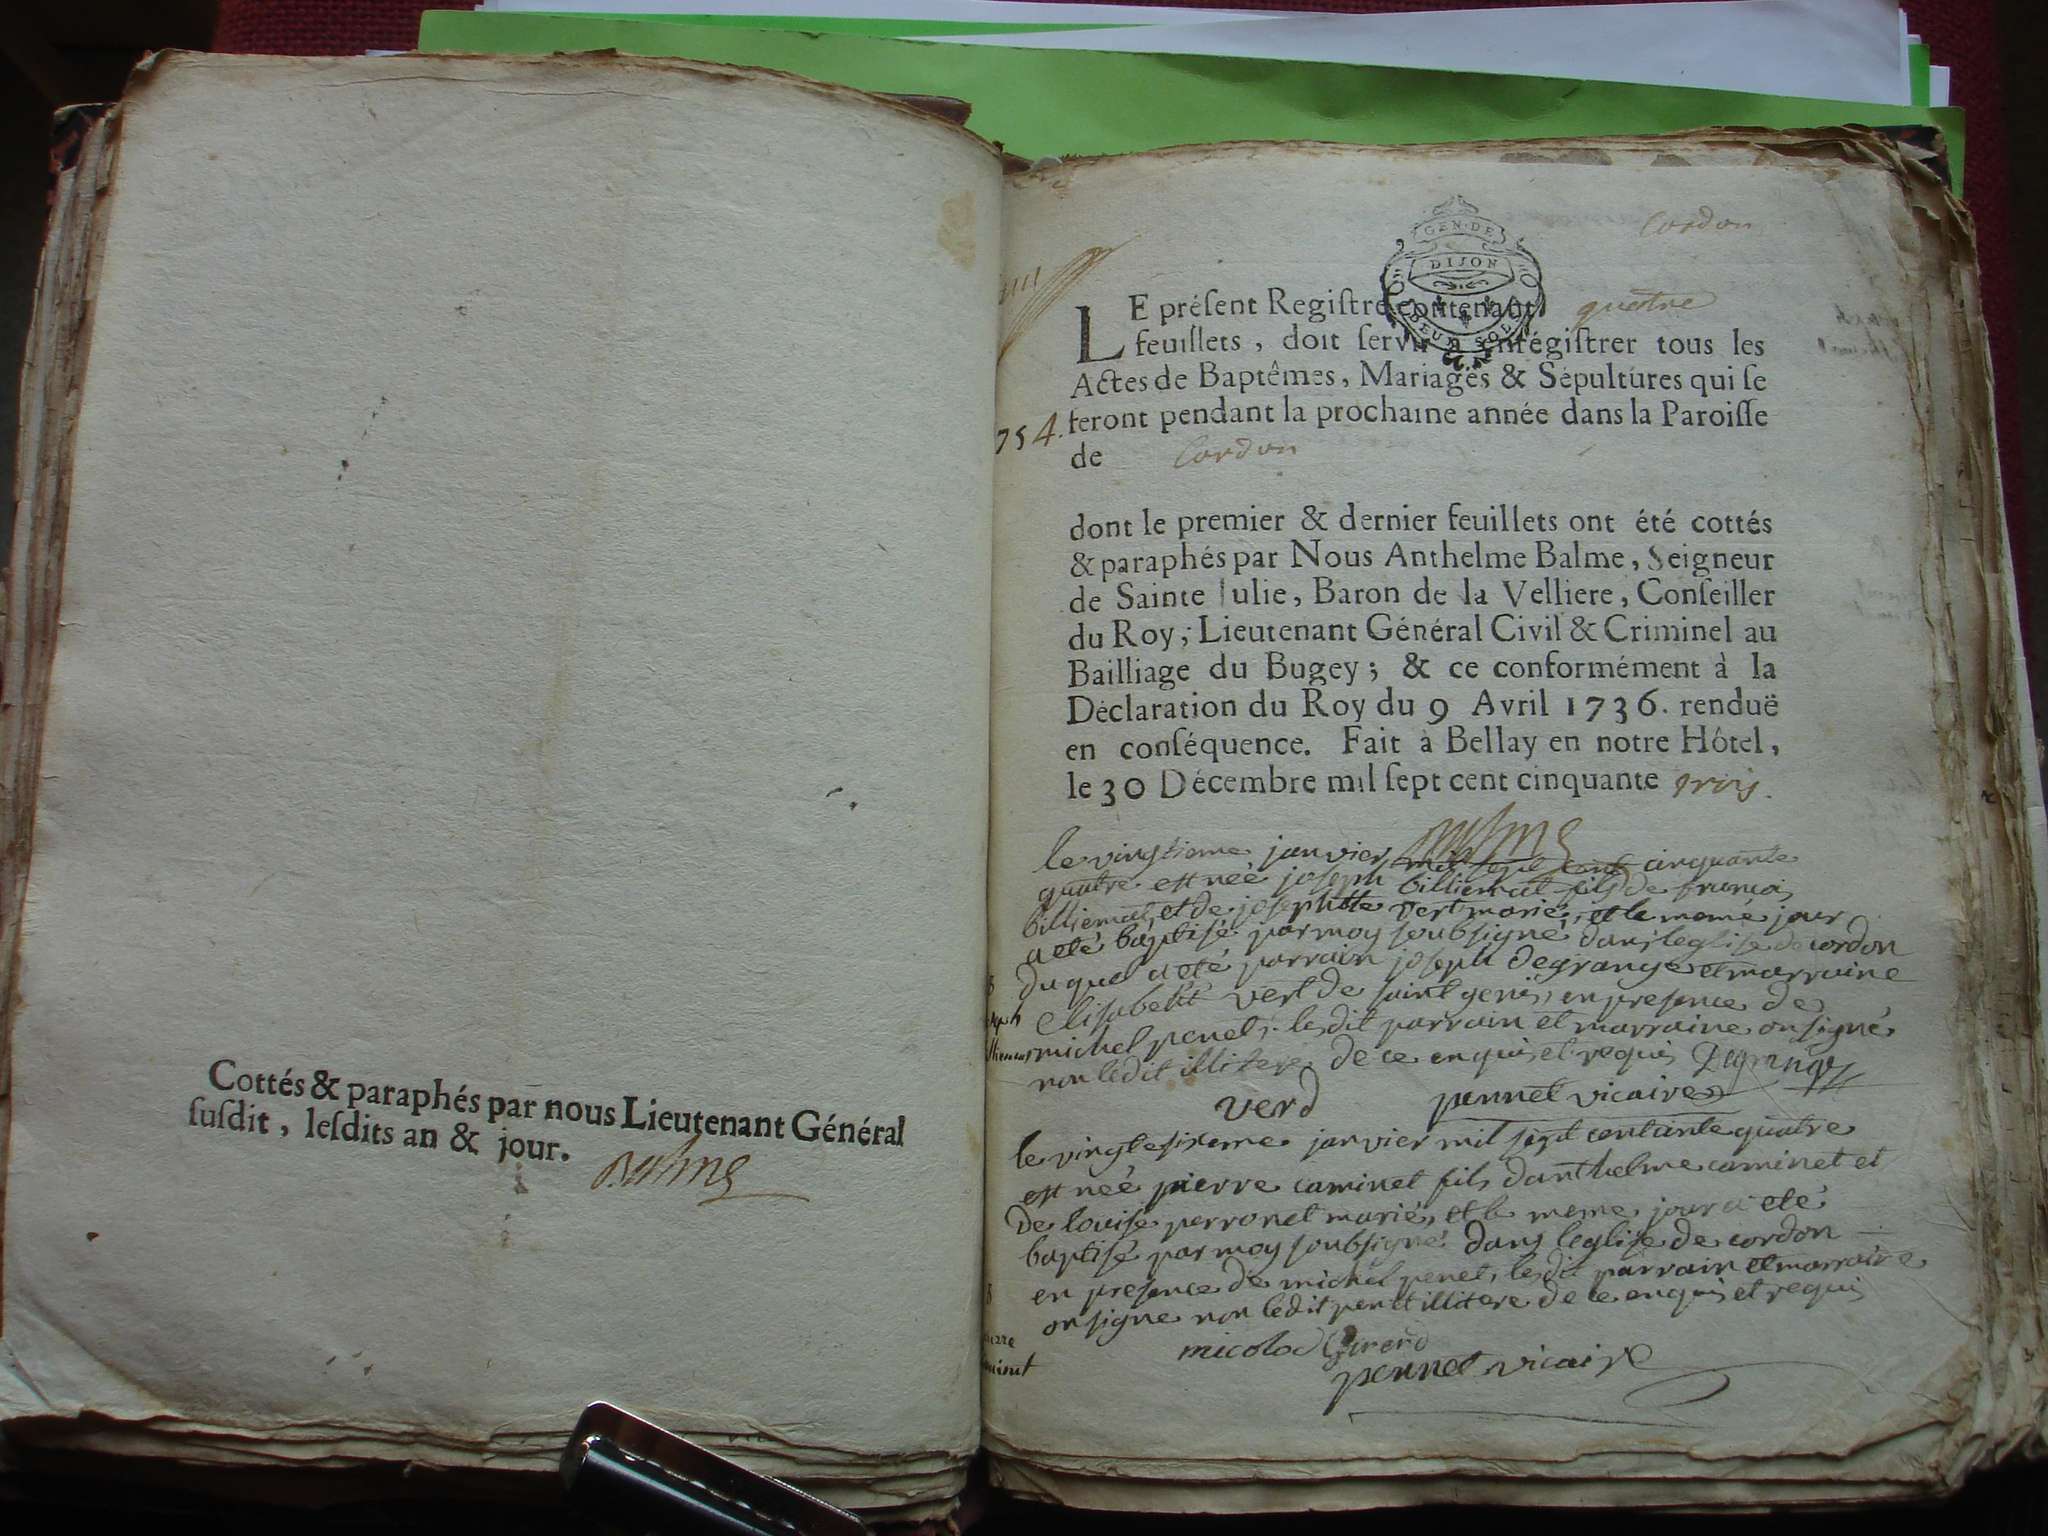 Cottés & paraphés par nous Lieutenant Général
suſdit, leſdits an & jour.
Balme
Cordon
GEN. DE
DIJON
DEUX SOLS
LE préſent Regiſtre contenant quatre
feuillets, doit ſervir à enrégiſtrer tous les
Actes de Baptêmes, Mariages & Sépultures qui ſe
feront pendant la prochaine année dans la Paroiſſe
754.
de Cordon
dont le premier & dernier feuillets ont été cottés
& paraphés par Nous Anthelme Balme, Seigneur
de Sainte Julie, Baron de la Velliere, Conſeiller
du Roy, Lieutenant Général Civil & Criminel au
Bailliage du Bugey; & ce conformément à la
Déclaration du Roy du 9 Avril 1736. renduë
en conſéquence. Fait à Bellay en notre Hôtel,
le 30 Décembre mil ſept cent cinquante trois.
Balme
le vingtieme janvier mil sept cent cinquante
quatre est neé joseph billiemat fils de francois
billiemat et de josephte vert mariés, et le meme jour
a eté baptisé par moy soubsigné dans leglise de cordon
duquel a eté parrain joseph degrange et marraine
elisabeth vert de saint genis, en presence de
michel penet, lesdit parrain et marraine on signé
non ledit illitere de ce enquis et requis Degrange
verd pennet vicaire
le vingtesixeme janvier mil sept centcinte quatre
est neé pierre caminet fils danthelme caminet et
de louise perronet mariés, et le meme jour a eté
baptisé par moy soubsigné dans leglise de cordon
en presence de michel penet, lesdit parrain et marraine
on signe non ledit penet illitere de ce enquis et requis
micolod Girerd
pennet vicaire